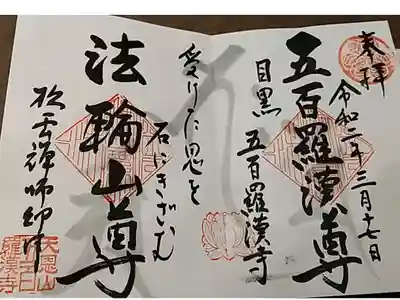 奉拝
令和二年三月十七日
五百羅漢尊
目黒 五百羅漢寺
受けた恩を
石にきざむ
法輪山尊
松雲禅師御作
天恩山
五百
羅漢寺